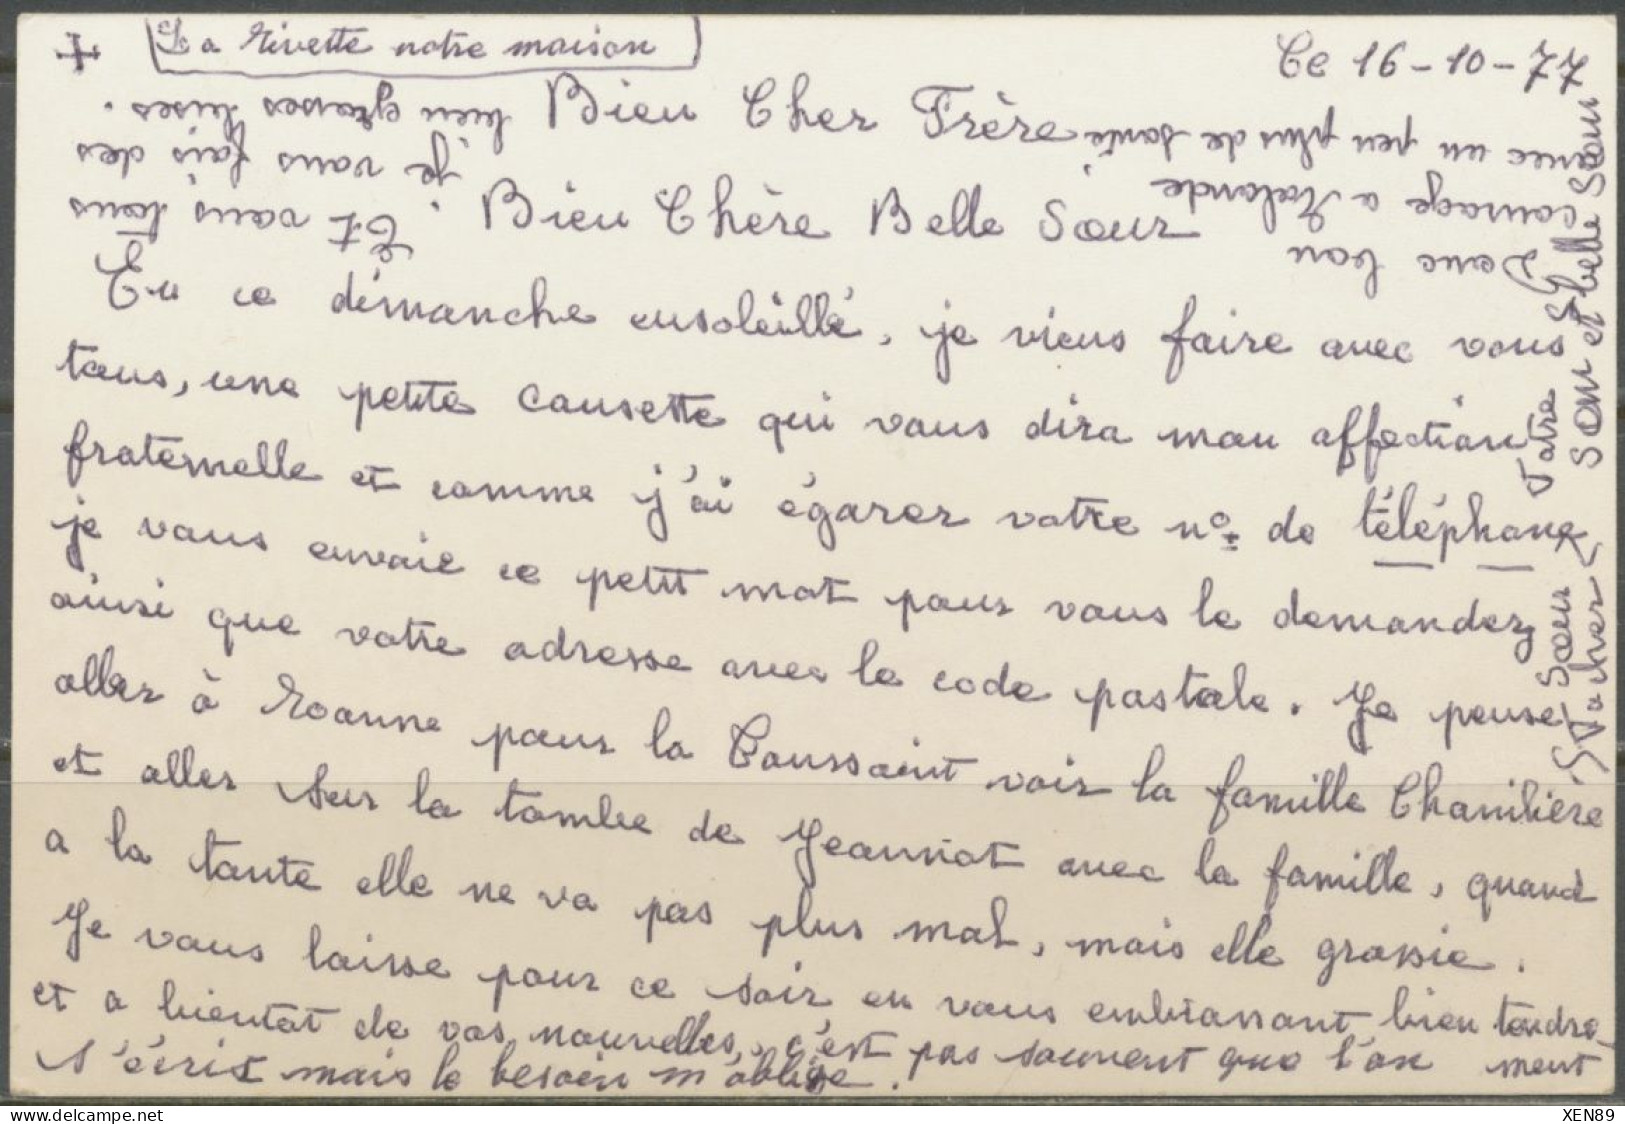 + La Rivette notre maison
Ce 16-10-77
Bien Cher Frère
Bien Chère Belle Sœur
En ce démanche ensoleillé, je viens faire avec vous
tous, une petite causette qui vous dira mon affection
fraternelle et comme j'ai égarer votre nº de téléphone
je vous envoie ce petit mot pour vous le demander
ainsi que votre adresse avec le code postale. Je pense
aller à Roanne pour la Toussaint voir la famille Chanilière
et aller sur la tombe de Jeannot avec la famille, quand
a la tante elle ne va pas plus mal, mais elle grossie.
Je vous laisse pour ce soir en vous embrassant bien tendre-
ment
et a bientôt de vos nouvelles, c'est pas souvent que l'on
s'écrit mais le besoin m'oblige.
Votre Sœur
Sœur et belle Sœur
Donc bon
courage a
avec un peu plus de santé.
Et vous tous
je vous fais des
bien grosses bises.
XEN89